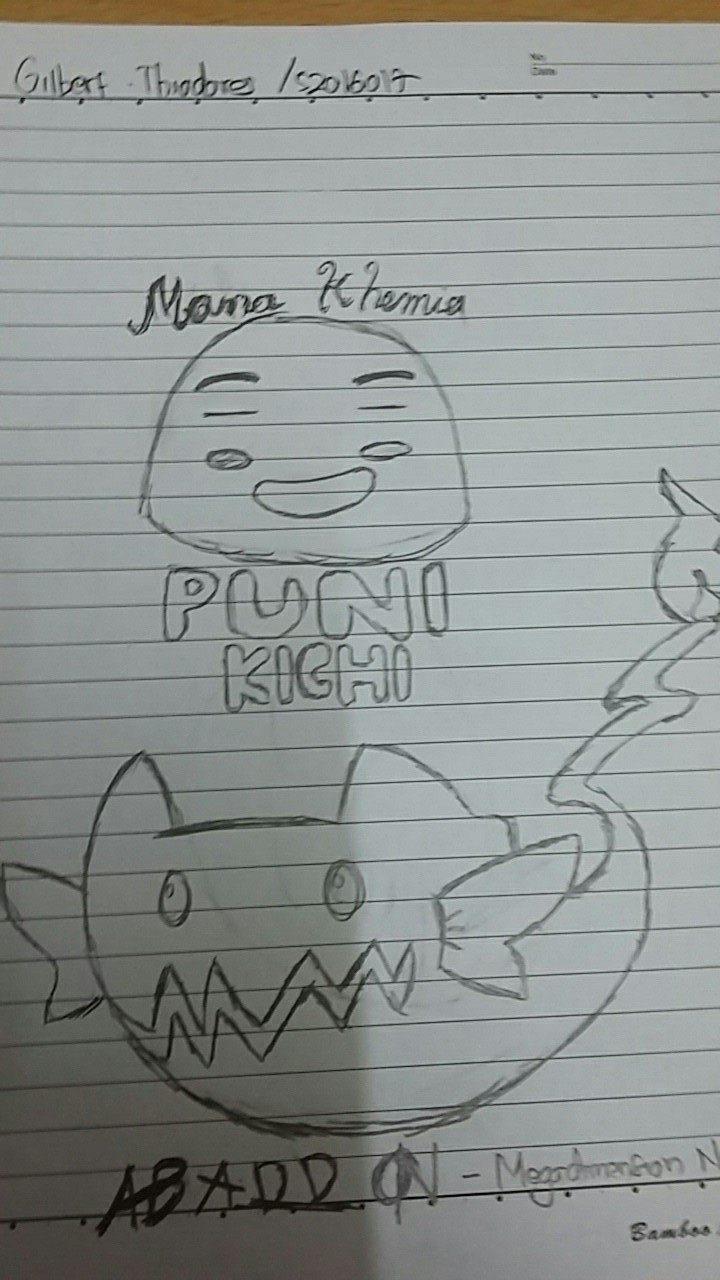 Gilbert Thiodores /s2016017
No.
Date
Mana Khemia
PUNI
KICHI
ABADDON - Megadimension N
Bamboo